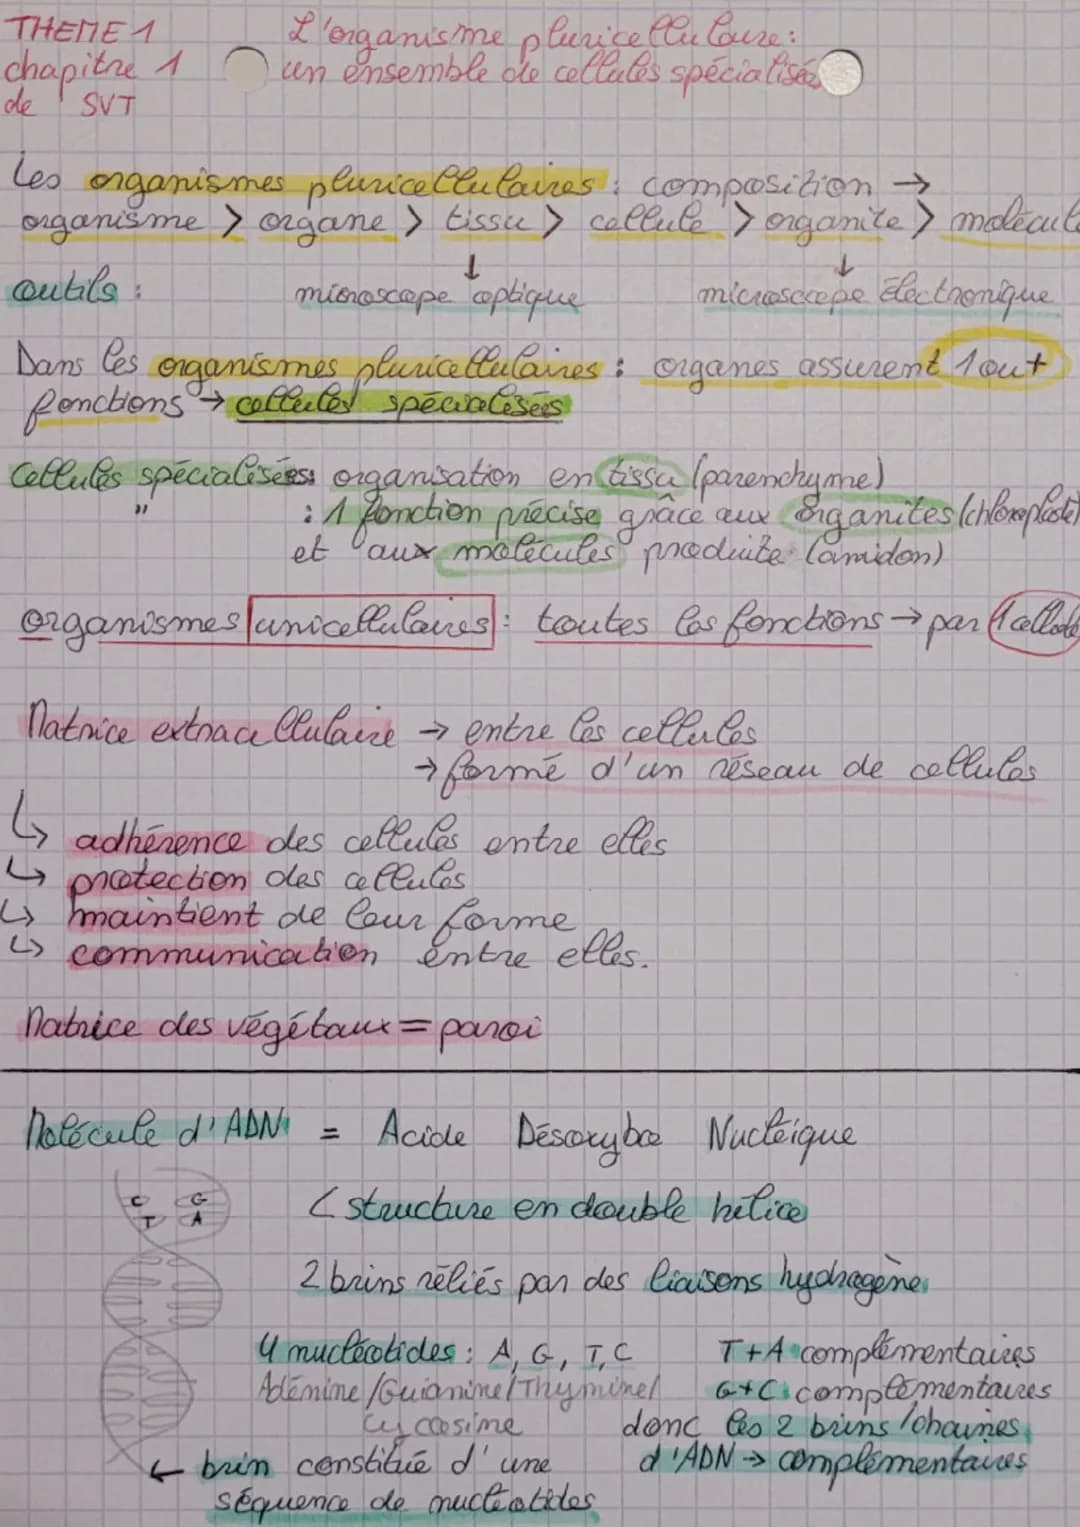 THEME 1
chapitre 1
de SVT
L'organisme pluricellulaire:
un ensemble de cellules spécialisées
Les organismes pluricellulaires : composition →
organisme > organe > tissu > cellule > organite > molécule
↓ ↓
outils : microscope optique microscope électronique
Dans les organismes pluricellulaires : organes assurent 1 out+
fonctions → cellules spécialisées
Cellules spécialisées: organisation en tissu (parenchyme)
" : 1 fonction précise grâce aux organites (chloroplaste)
et aux molécules produite (amidon)
organismes unicellulaires : toutes les fonctions → par 1 cellule
Matrice extracellulaire → entre les cellules
→ formé d'un réseau de cellules
↳ adhérence des cellules entre elles
↳ protection des cellules
↳ maintient de leur forme
↳ communication entre elles.
Matrice des végétaux = paroi
Molécule d'ADN = Acide Désoxybo Nucléique
C G
T A
( structure en double hélice
2 brins réliés par des liaisons hydrogène
4 nucléotides : A, G, T, C
Adénine/Guianine/Thymine/
cycosime
T+A complémentaires
G+C complémentaires
donc les 2 brins/chaines
d'ADN → complémentaires
← brin constitué d'une
séquence de nucléotides